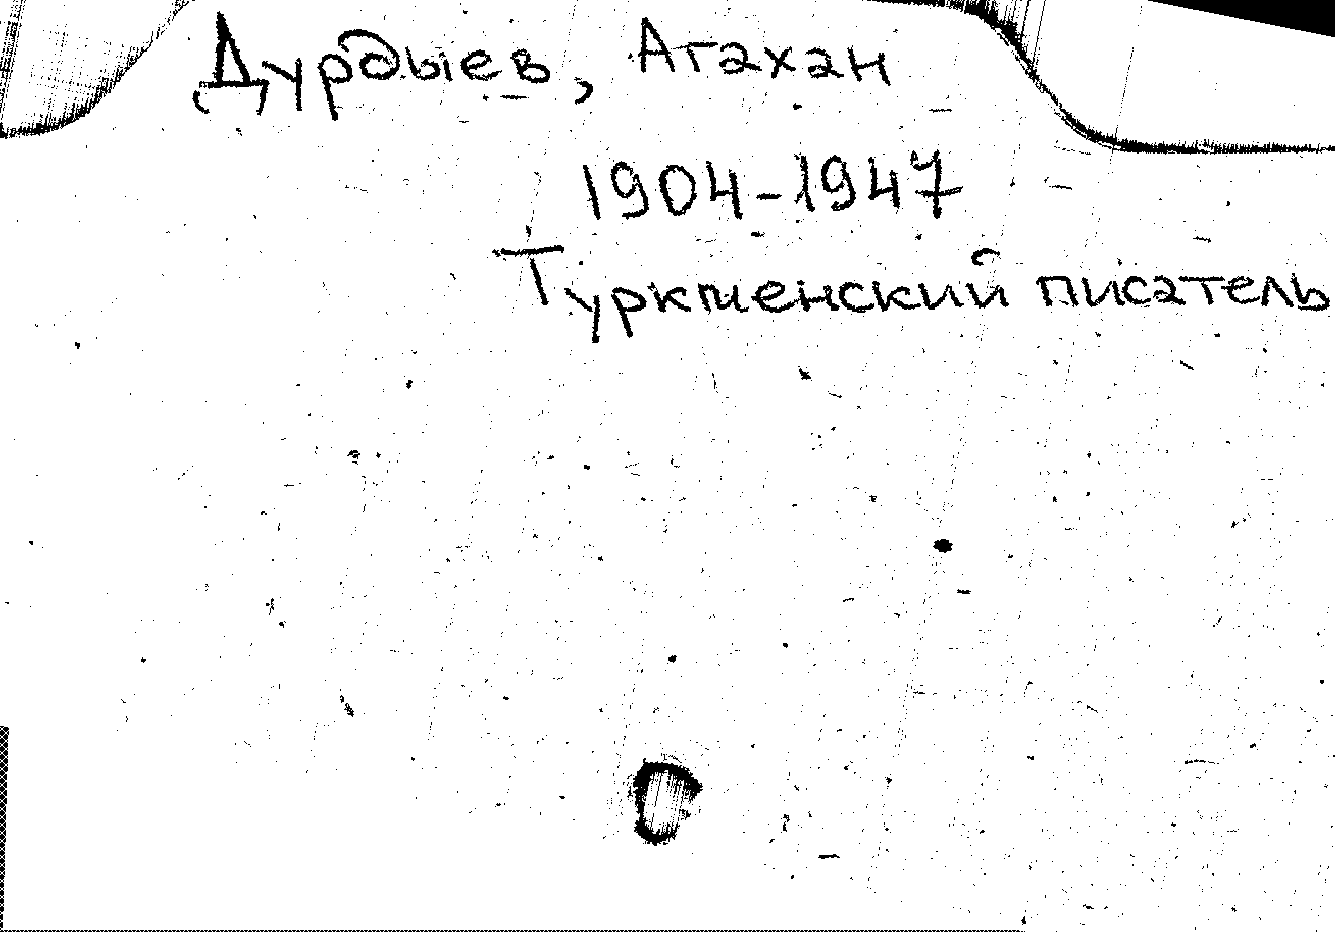 Дурдыев, Агахан
1904-1947
Туркменский писатель